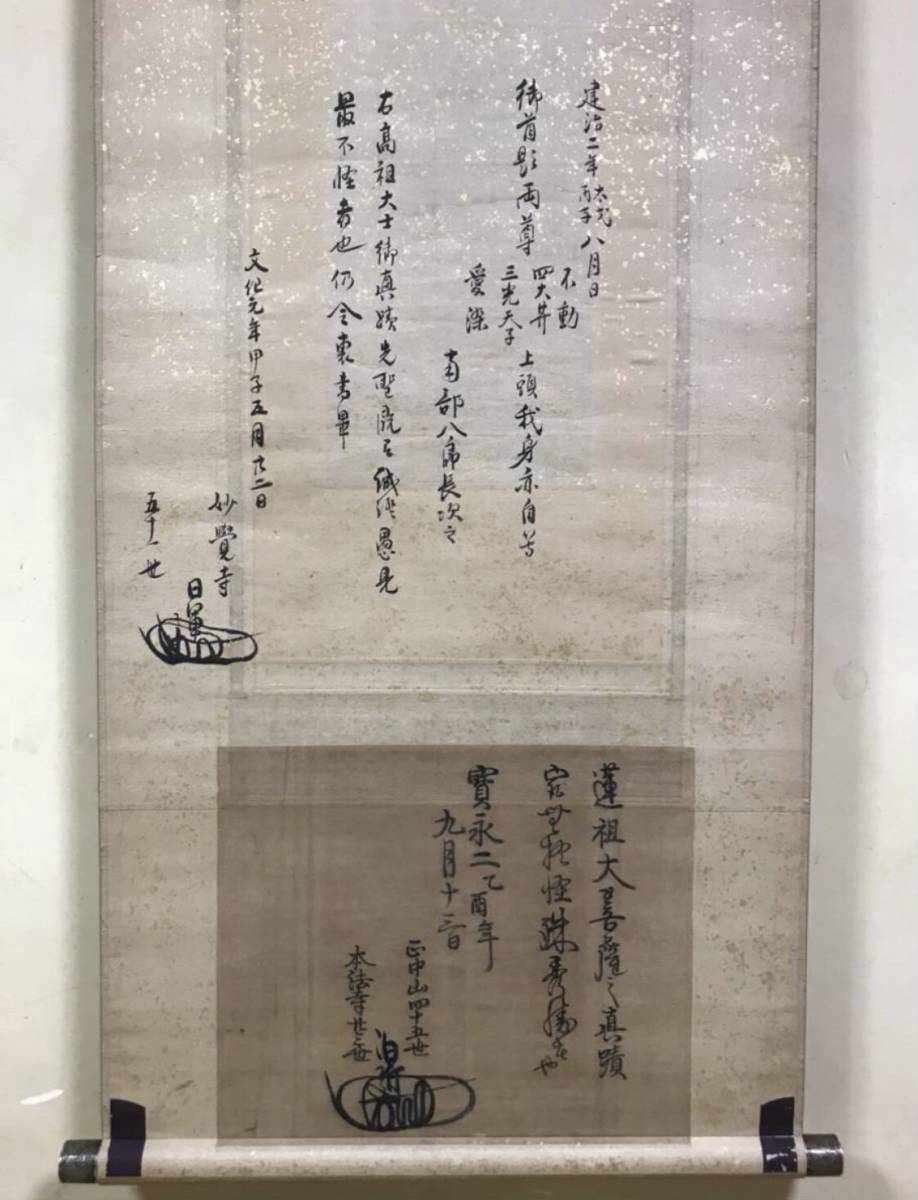 建治二年太才丙子八月日
御首題両尊
不動
四大井
三光天子
愛染
上頭我身亦自各
南部八郎長次之
右高祖大士御真蹟先聖既云誠洪愚見
最不怪者也仍令裏書畢
文化元年甲子五月廿二日
妙覺寺
五十一世
日
蓮祖大菩薩之真蹟
怪殊
寶永二乙酉年
九月十三日
正中山四十五世
本法寺廿二世
日